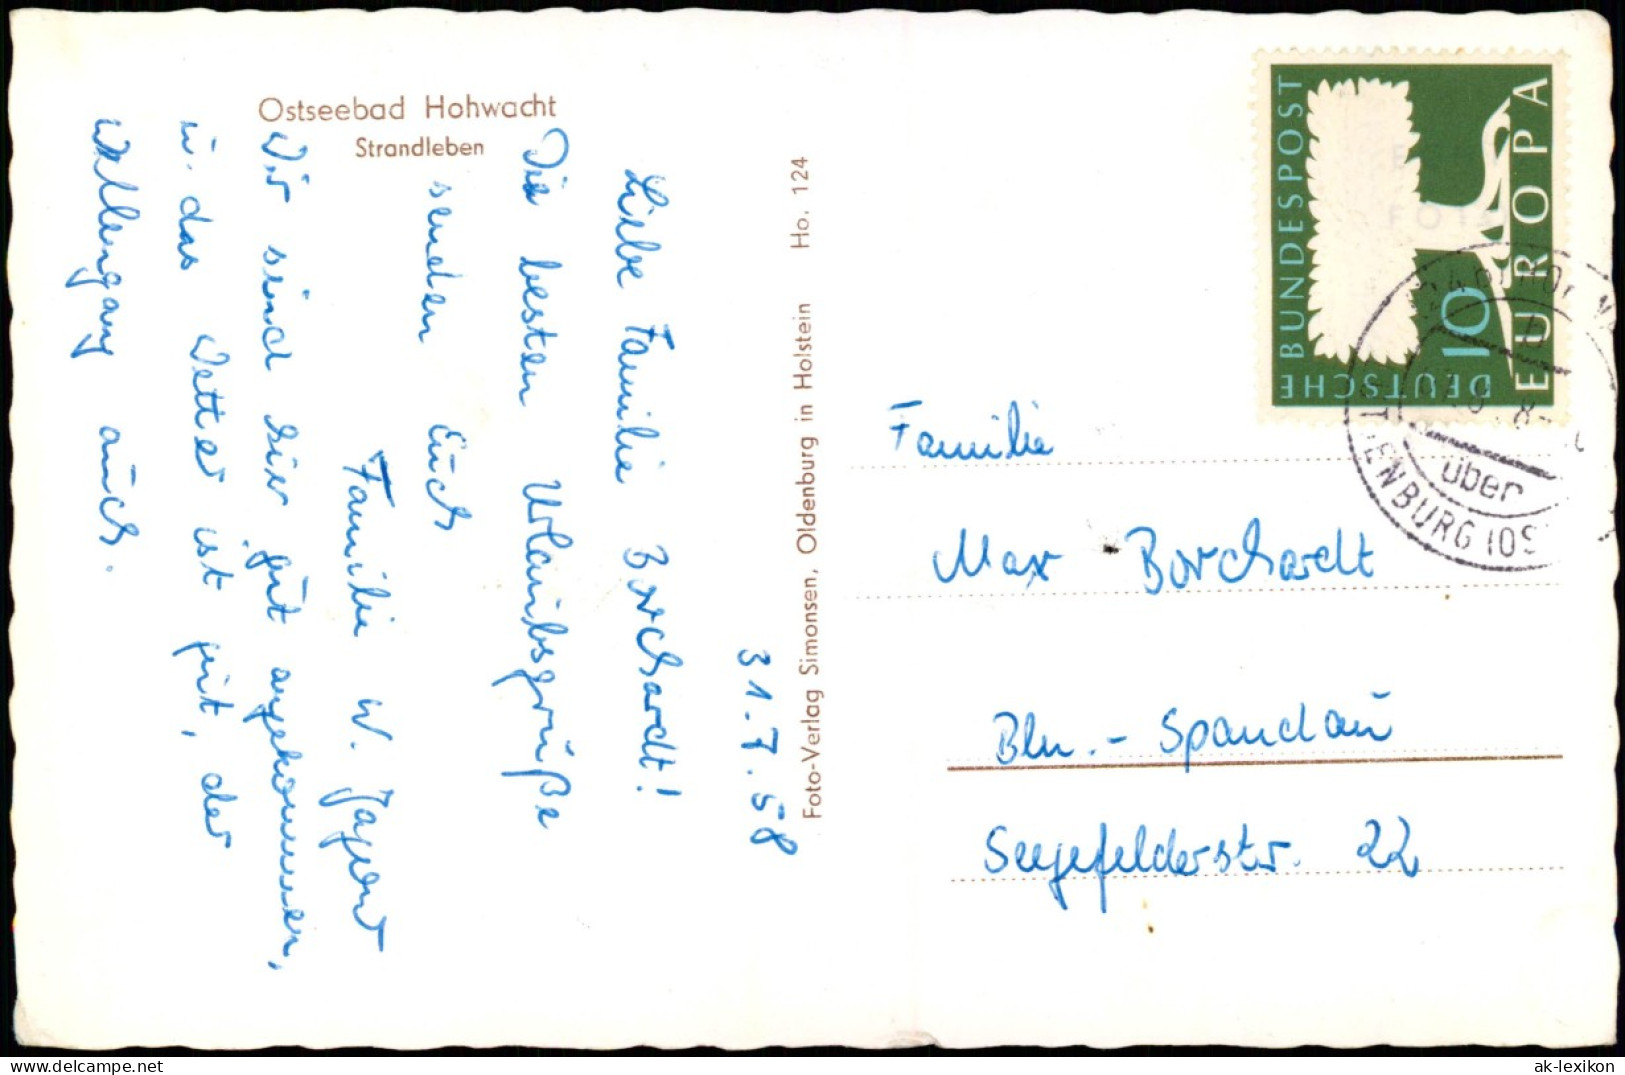 Ostseebad Hohwacht
Strandleben
31.7.58
Liebe Familie Borchardt!
Die besten Urlaubsgrüße
senden Euch
Familie W.
Wir sind hier gut angekommen,
u. das Wetter ist gut, der
Wellengang auch.
Foto-Verlag Simonsen, Oldenburg in Holstein Ho. 124
DEUTSCHE BUNDESPOST
10
EUROPA
über
Familie
Max Borchardt
Bln.-Spandau
Seegefelderstr. 22
www.ansichtskarten-lexikon.de
ak-lexikon